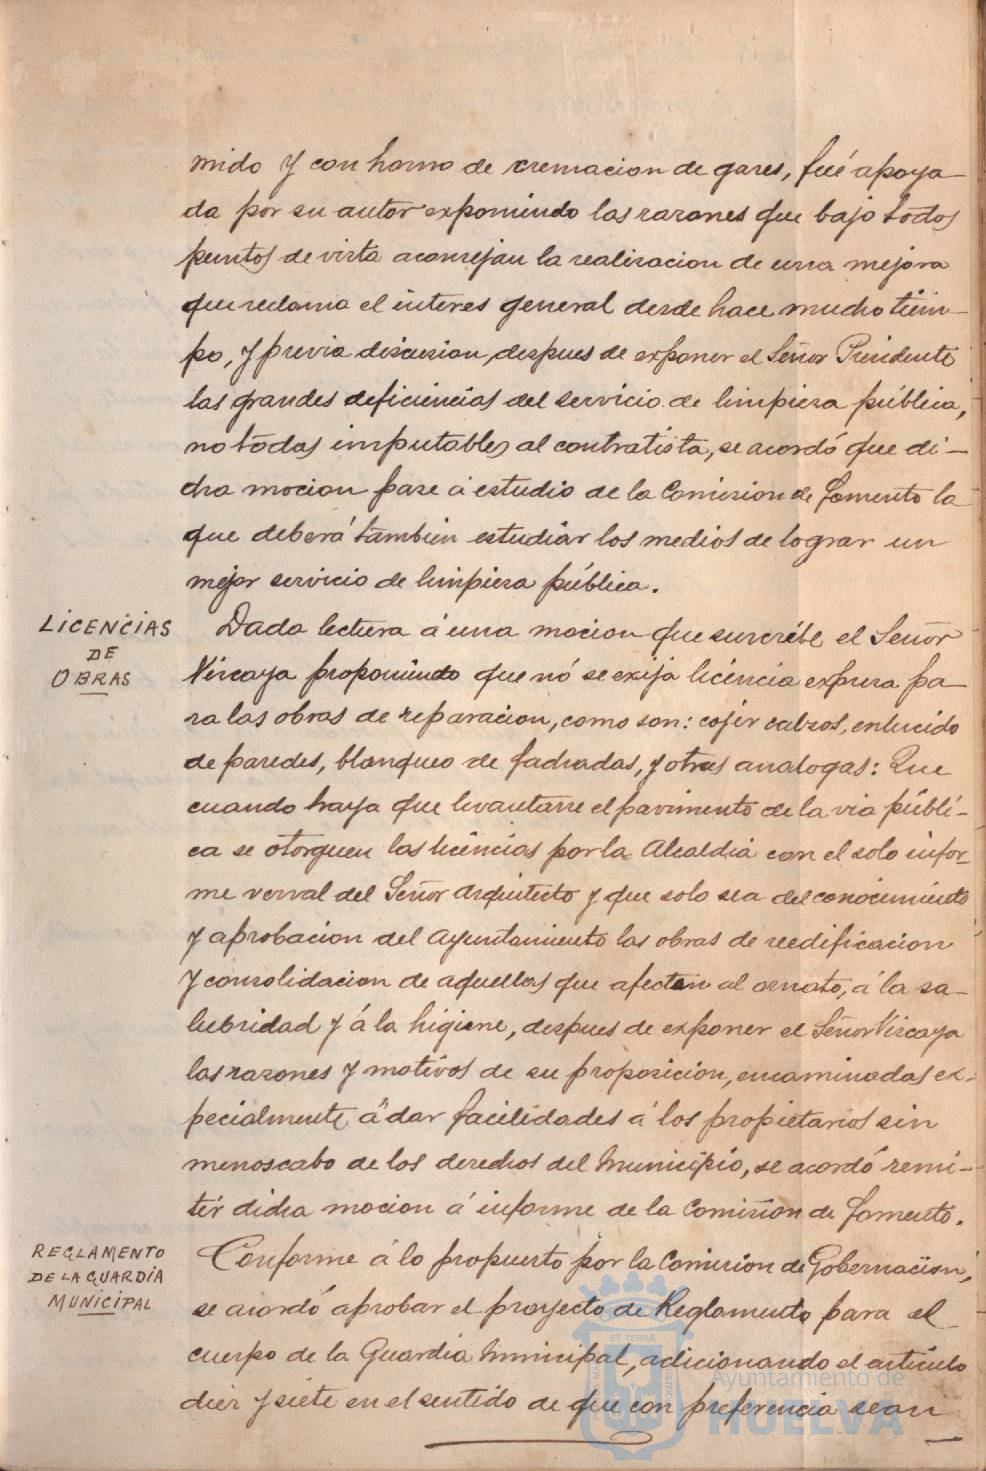 mido y con horno de cremacion de gases, fué apoya-
da por su autor exponiendo las razones que bajo todos
puntos de vista aconsejan la realizacion de una mejora
que reclama el interes general desde hace mucho tiem-
po, y previa discusion, despues de exponer el Señor Presidente
las grandes deficiencias del servicio de limpieza pública,
no todas imputables al contratista, se acordó que di-
cha mocion pase á estudio de la Comision de Fomento la
que deberá tambien estudiar los medios de lograr un
mejor servicio de limpieza pública.
LICENCIAS
DE
OBRAS
Dada lectura á una mocion que suscribe el Señor
Vizcaya proponiendo que nó se exija licencia expresa pa-
ra las obras de reparacion, como son: cojer calzos, enlucido
de paredes, blanqueo de fachadas, y otras analogas: Que
cuando haya que levantarse el pavimento de la via públi-
ca se otorguen las licencias por la Alcaldia con el solo infor-
me verval del Señor Arquitecto y que solo sea del conocimiento
y aprobacion del Ayuntamiento las obras de reedificacion
y consolidacion de aquellas que afecten al ornato, á la sa-
lubridad y á la higiene, despues de exponer el Señor Vizcaya
las razones y motivos de su proposicion, encaminadas es-
pecialmente á dar facilidades á los propietarios sin
menoscabo de los derechos del Municipio, se acordó remi-
tir dicha mocion á informe de la Comision de Fomento.
REGLAMENTO
DE LA GUARDIA
MUNICIPAL
Conforme á lo propuesto por la Comision de Gobernacion,
se acordó aprobar el proyecto de Reglamento para el
cuerpo de la Guardia Municipal, adicionando el articulo
diez y siete en el sentido de que con preferencia sean
ET TERRÆ
Ayuntamiento de
HUELVA